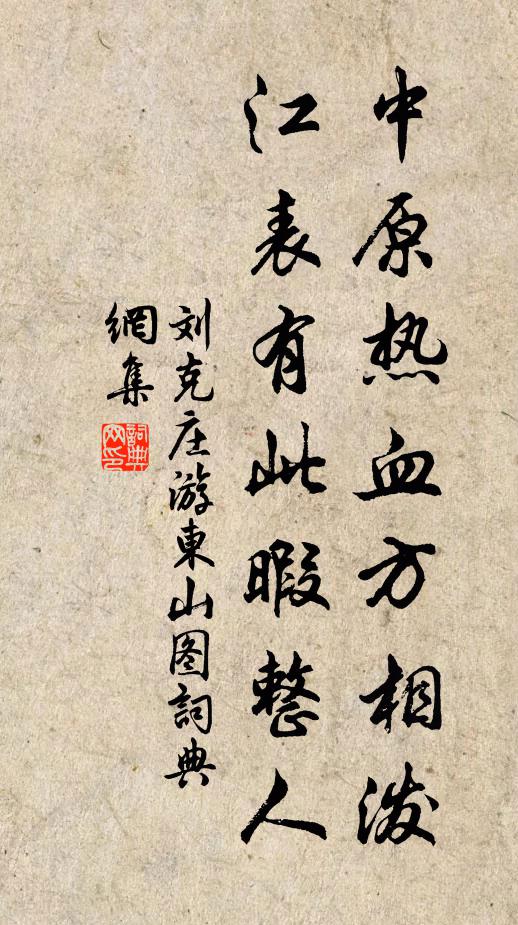 中原热血方相泼
江表有此暇整人
刘克庄游東山图詞典
網集
詞典网印